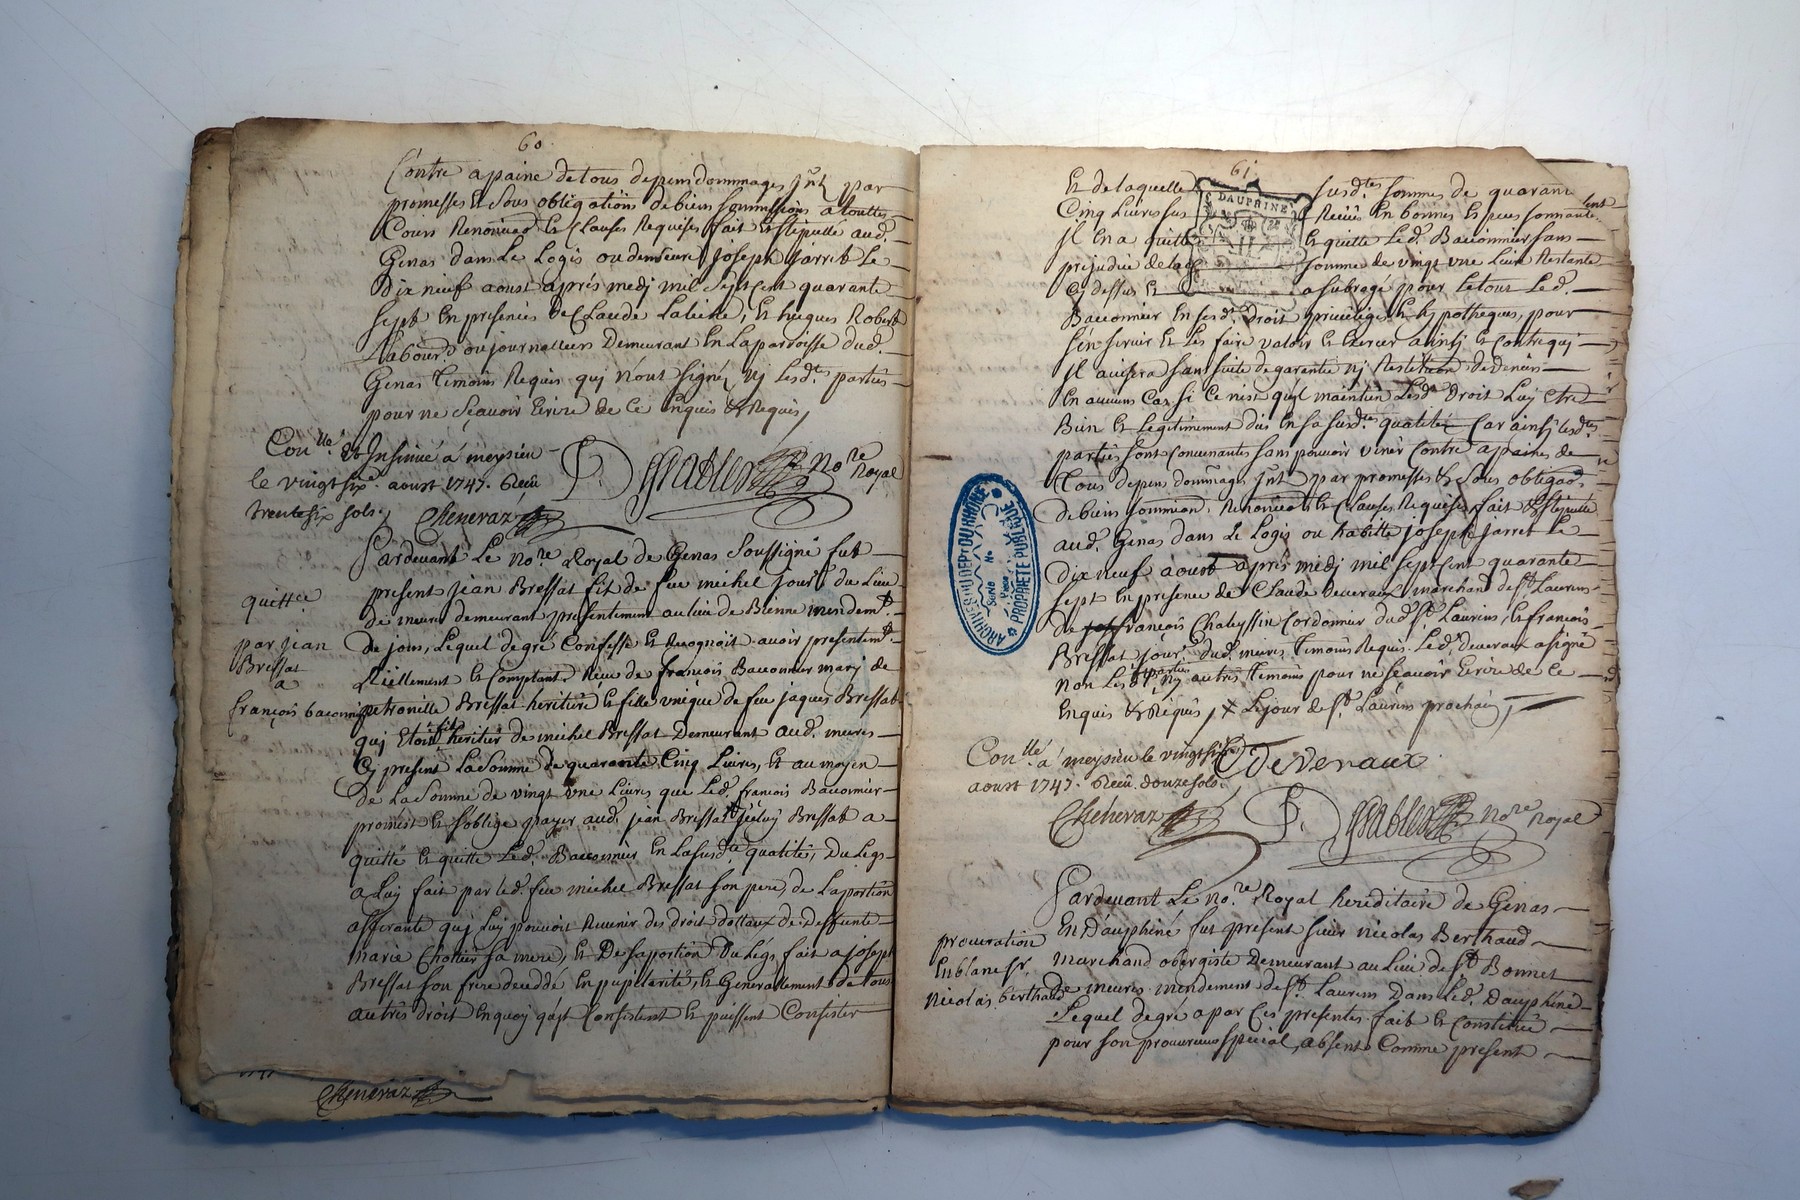 60
Contre a paine de tous depens dommages jnt par
promesses et sous obligations de biens sommissions a touttes
Cours Renonciaon et Clauses Requises fait et stipulle aud.
Genas dans Le Logis ou demeure joseph jarrit Le
dix neuf aoust aprés medj mil sept cent quarante
sept En presences de Claude et hugues Robert
Labour.s ou journalliers Demeurant En La parroisse dud.
Genas temoins Requis quj n'ont signéz nj Lesd.ts parties
pour ne sçavoir Ecrire de Ce Enquis et Requis,
Con.llé et Insinué á meysieu
le vingt six.e aoust 1747. Recu
trente six sols.
Cheneraz
No.re Royal
Pardevant Le No.re Royal de Genas soussigné fut
quitt.ce
par jean
Bressat
a
françois baconnier
present jean Bressat fils de feu michel jour.r du Lieu
de meure demeurant presentement au lieu de Bienne mendem.t
de jons, Lequel de gré Confesse et Recognoit avoir presentem.t
Réellement et Comptant Receu de françois Baconnier marj de
petronille Bressat heritiere et fille unique de feu jaques Bressat
quj Etoit fils heritier de michel Bressat Demeurant aud. meures
Cj present La somme de quarante Cinq Livres, et au moyen
de La somme de vingt une Livres que Led. françois Baconnier
promest et s'oblige payer aud. jean Bressat jceluy Bressat a
quitté et quitte Led. Baconnier En La susd.te qualité, Du Legs
a Luy fait par led. feu michel Bressat son pere, de La portion
afferante quj Luy pouvoit Revenir des droit dottaux de deffunte
marie Chollier sa mere, et De sa portion Du Légs fait a joseph
Bressat son frere decedé En pupilarité, et Generallement de tous
autres droit En quoy q'ils Consistent et puissent Consister
Cheneraz
61
Et de laquelle susd.tes sommes de quarante
Cinq Livres sus Receüs En bonnes Et
Il En a quitté et quitte Led. Baconnier sans
prejudice de lad. somme de vingt une Livre Restante
Cj dessus et a subrogé pour Le tout Led.
Baconnier En sesd. droit privilégés et hypotheques, pour
s'en servir et Les faire valoir et Exercer ainsj et Contre quj
Il avisera sans suite de garantie nj Restitution de Deniers
En aucuns Cas si Ce n'est qu'il maintien Lesd. Droit Luy Etre
Bien et Legitimement dus En sa susd.te qualité Car ainsj lesd.tes
parties sont Convenantes sans pouvoir venir Contre a paines de
Tous depens dommages jnt par promesses et sous obligaon
de biens sommission Renonciaon et Clauses Requises fait et stipulle
aud. Genas dans Le Logis ou habitte joseph jarret Le
dix neuf aoust aprés medj mil sept cent quarante
sept En presence de Claude Deveraux marchand de S.t Laurens
de françois Chaleyssin Cordonnier dud. S.t Laurens, et françois
Bressat jour.r dud. meures temoins Requis. Led. Deveraux a signé
non Les parties nj autres temoins pour ne sçavoir Ecrire de Ce
Enquis et Requis, x Le jour de S.t Laurens prochain
Con.llé á meysieu le vingt six
aoust 1747. Recu douze sols.
DeVeraux
Cheneraz
No.re Royal
Pardevant Le No.re Royal hereditaire de Genas
procuration
En blanc s.r
Nicolas berthaud
En Dauphiné fut present sieur nicolas Berthaud
marchand obergiste Demeurant au Lieu de S.t Bonnet
de meures mendement de S.t Laurens Dans Led. Dauphiné
Lequel de gré a par Ces presentes fait et Constitüé
pour son procureur special, absent Comme present
DAUPHINÉ
ARCHIVES DU DEP.T DU RHÔNE
Série No
Pièce
PROPRIÉTÉ PUBLIQUE